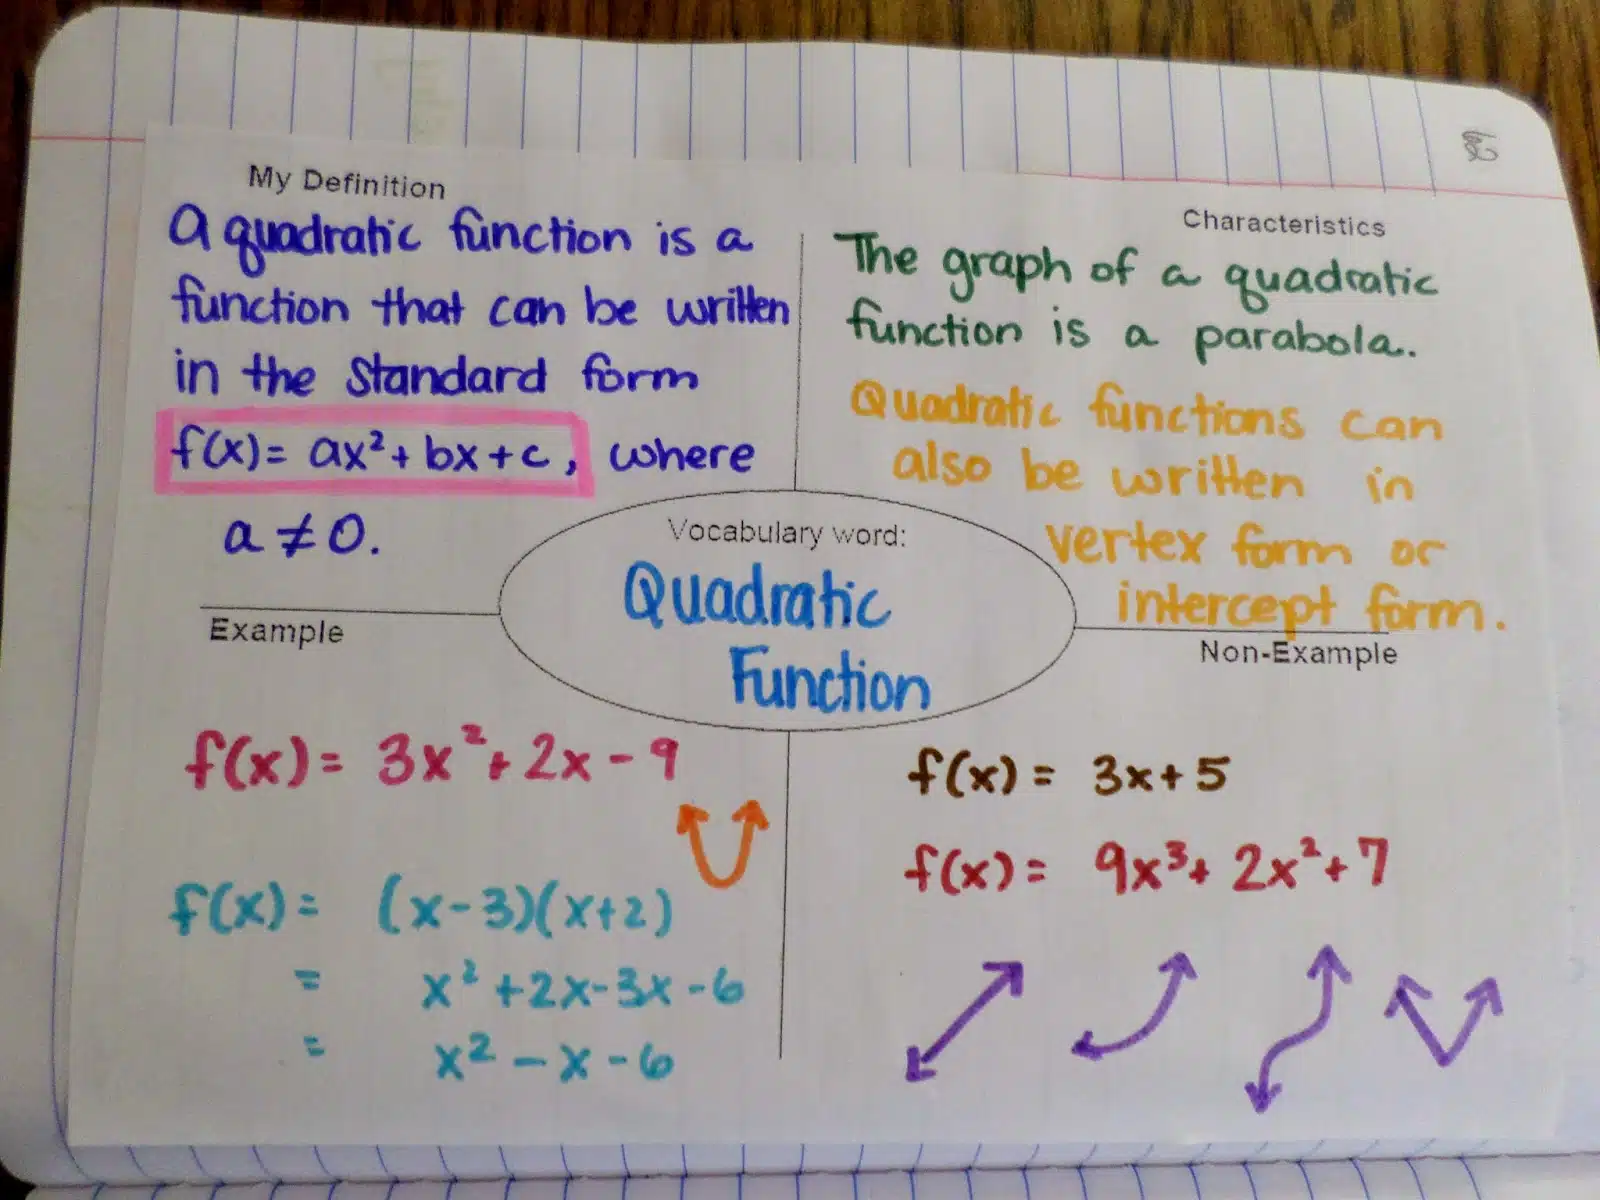 My Definition
A quadratic function is a
function that can be written
in the standard form
f(x) = ax² + bx + c, where
a ≠ 0.
Characteristics
The graph of a quadratic
function is a parabola.
Quadratic functions can
also be written in
vertex form or
intercept form.
Vocabulary word:
Quadratic
Function
Example
f(x) = 3x² + 2x - 9
f(x) = (x-3)(x+2)
= x² + 2x - 3x - 6
= x² - x - 6
Non-Example
f(x) = 3x + 5
f(x) = 9x³ + 2x² + 7